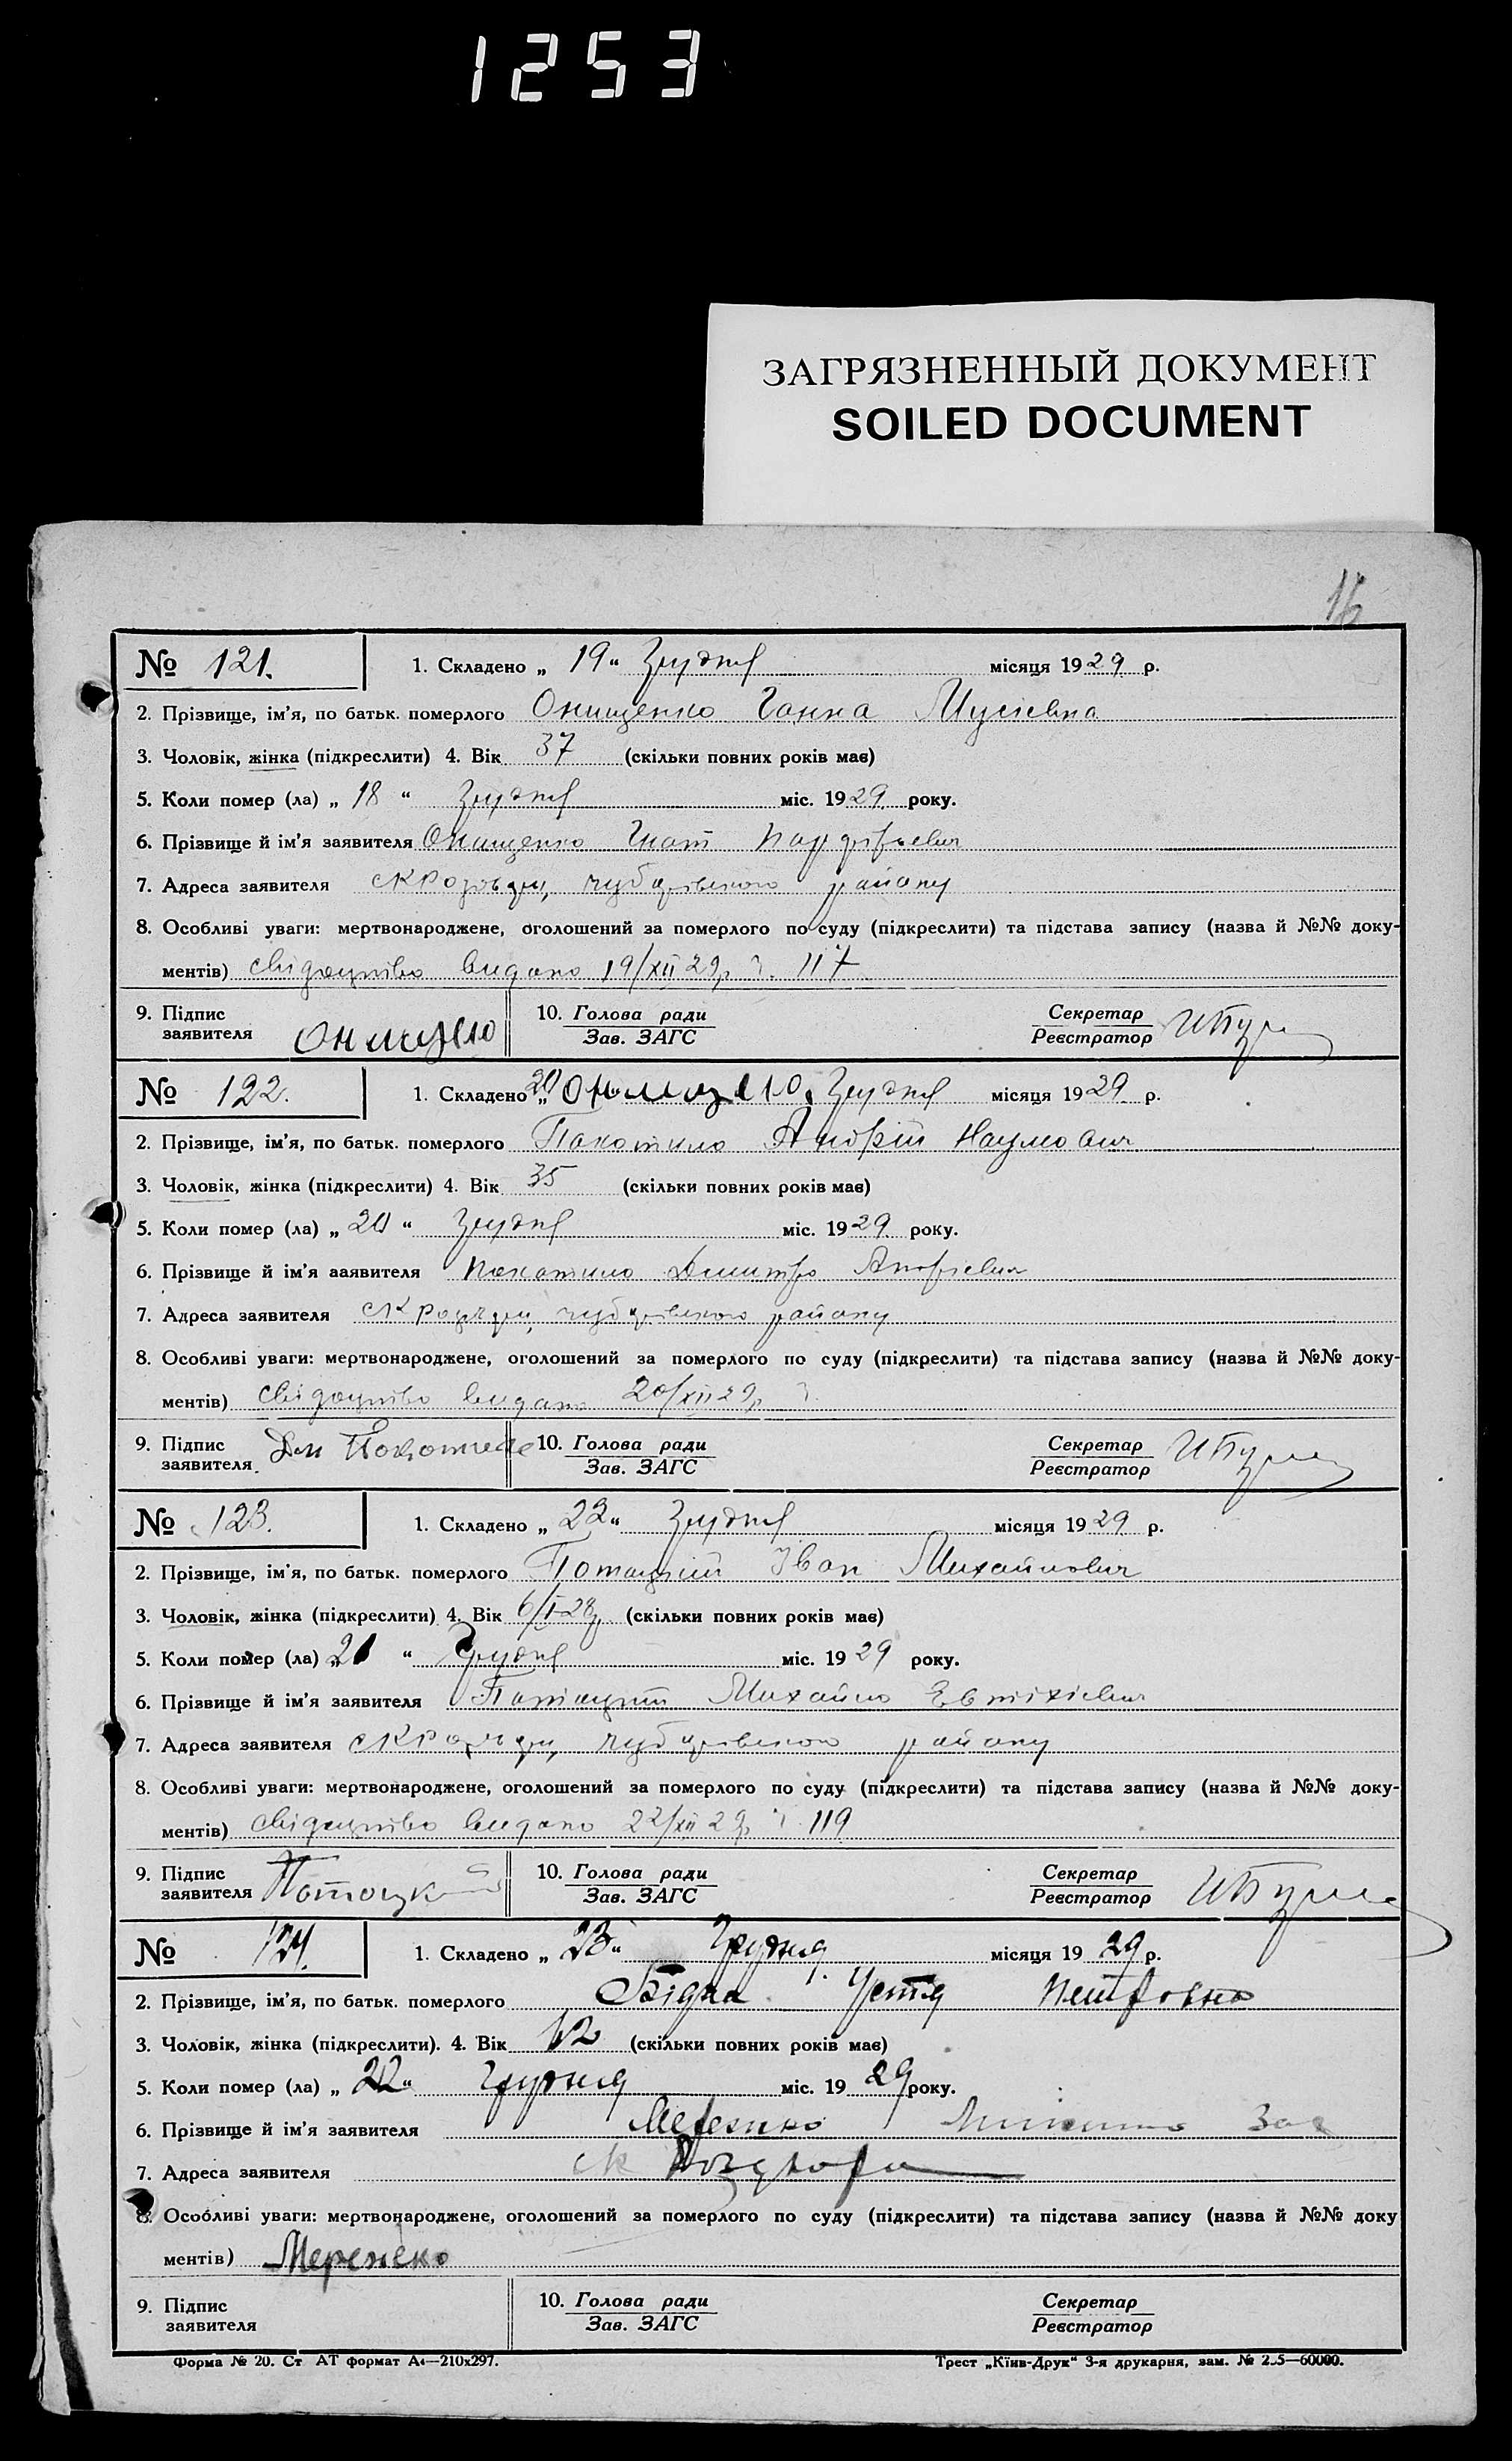 1253
ЗАГРЯЗНЕННЫЙ ДОКУМЕНТ
SOILED DOCUMENT
16
№ 121. 1. Складено „ 19 “ Грудня місяця 1929 р.
2. Прізвище, ім’я, по батьк. померлого Онищенко Ганна Мусієвна
3. Чоловік, жінка (підкреслити) 4. Вік 37 (скільки повних років має)
5. Коли помер (ла) „ 18 “ Грудня міс. 1929 року.
6. Прізвище й ім’я заявителя Онищенко Гнат
7. Адреса заявителя району
8. Особливі уваги: мертвонароджене, оголошений за померлого по суду (підкреслити) та підстава запису (назва й №№ доку-
ментів) свідоцтво видано 19/XII 29р. 117
9. Підпис заявителя 10. Голова ради Секретар
Зав. ЗАГС Реєстратор
№ 122. 1. Складено „ 20 Грудня місяця 1929 р.
2. Прізвище, ім’я, по батьк. померлого Покотило Андрій Наумович
3. Чоловік, жінка (підкреслити) 4. Вік 35 (скільки повних років має)
5. Коли помер (ла) „ 20 “ Грудня міс. 1929 року.
6. Прізвище й ім’я ааявителя Покотило Дмитро Андрієвич
7. Адреса заявителя району
8. Особливі уваги: мертвонароджене, оголошений за померлого по суду (підкреслити) та підстава запису (назва й №№ доку-
ментів) свідоцтво видано 20/XII 29р.
9. Підпис заявителя Дм Покотило 10. Голова ради Секретар
Зав. ЗАГС Реєстратор
№ 123. 1. Складено „ 22 “ Грудня місяця 1929 р.
2. Прізвище, ім’я, по батьк. померлого Потоцкий Іван Михайлович
3. Чоловік, жінка (підкреслити) 4. Вік 6/I-28р. (скільки повних років має)
5. Коли помер (ла) „ 21 “ Грудня міс. 1929 року.
6. Прізвище й ім’я заявителя Потоцкий Михайло Евтихіевич
7. Адреса заявителя району
8. Особливі уваги: мертвонароджене, оголошений за померлого по суду (підкреслити) та підстава запису (назва й №№ доку-
ментів) свідоцтво видано 22/XII 29р. 119
9. Підпис заявителя Потоцкий 10. Голова ради Секретар
Зав. ЗАГС Реєстратор
№ 124. 1. Складено „ 23 “ Грудня місяця 1929 р.
2. Прізвище, ім’я, по батьк. померлого Бідна Устя Петровна
3. Чоловік, жінка (підкреслити). 4. Вік 12 (скільки повних років має)
5. Коли помер (ла) „ 22 “ Грудня міс. 1929 року.
6. Прізвище й ім’я заявителя Мережко
7. Адреса заявителя
8. Особливі уваги: мертвонароджене, оголошений за померлого по суду (підкреслити) та підстава запису (назва й №№ доку
ментів) Мережко
9. Підпис заявителя 10. Голова ради Секретар
Зав. ЗАГС Реєстратор
Форма № 20. Ст АТ формат А4—210х297. Трест „Київ-Друк“ 3-я друкарня, зам. № 60000.